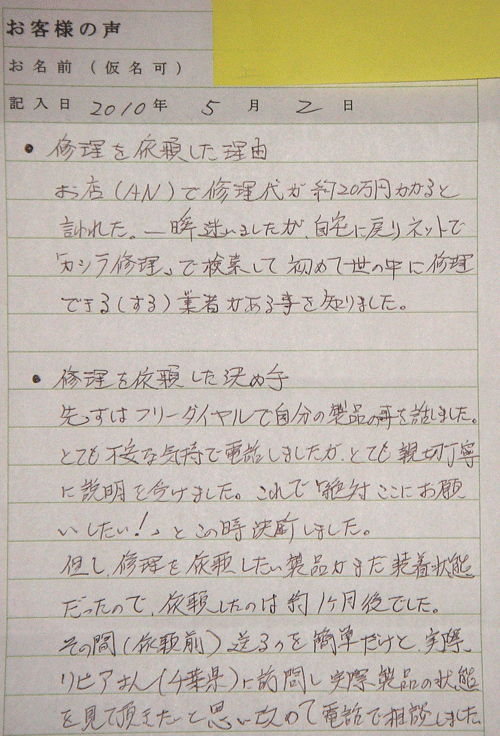 お客様の声
お名前（仮名可）
記入日 2010年 5月 2日
• 修理を依頼した理由
お店(AN)で修理代が約20万円かかると
言われた。一瞬迷いましたが、自宅に戻りネットで
「カツラ修理」で検索して初めて世の中に修理
できる(する)業者がある事を知りました。
• 修理を依頼した決め手
先づはフリーダイヤルで自分の製品の事を話しました。
とても不安な気持で電話しましたが、とても親切丁寧
に説明を受けました。これで「絶対ここにお願
いしたい!」とこの時決断しました。
但し、修理を依頼したい製品がまだ装着状態
だったので、依頼したのは約1ヶ月後でした。
その間(依頼前)送るのを簡単だけど、実際、
リピアさん(千葉県)に訪問し実際、製品の状態
を見て頂きたいと思い改めて電話で相談しました